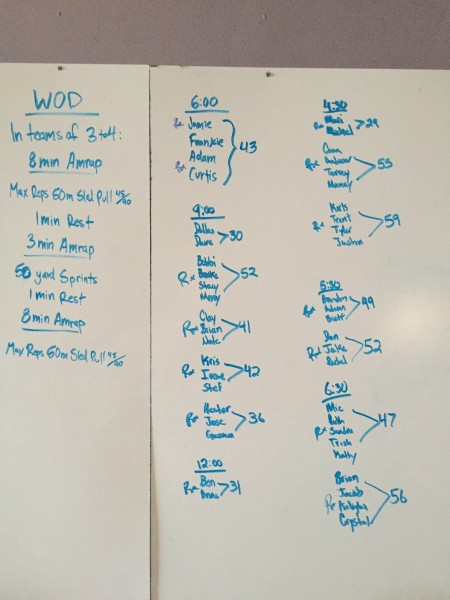 WOD
In teams of 3 to 4:
8 min Amrap
Max Reps 50m Sled Pull 45/90
1 min Rest
3 min Amrap
50 yard Sprints
1 min Rest
8 min Amrap
Max Reps 50m Sled Pull 45/90
6:00
Rx Jamie
Frankie
Adam
Rx Curtis
43
9:00
Dallas
Dave
30
Bobbi
Rx
Stacy
Missy
52
Clay
Rx Brian
Nate
41
Kris
Rx Irene
Stef
42
Rx Jose
36
12:00
Rx Ben
31
4:30
Rx
29
Rx
Torrey
Manny
55
Kirk
Rx Trent
Tyler
Justin
59
5:30
Brandon
Rx Adam
Brett
49
Dan
Rx Jake
Rachel
52
6:30
Ruth
Rx Sandra
Trish
Kathy
47
Brian
Jacob
Rx
Crystal
56